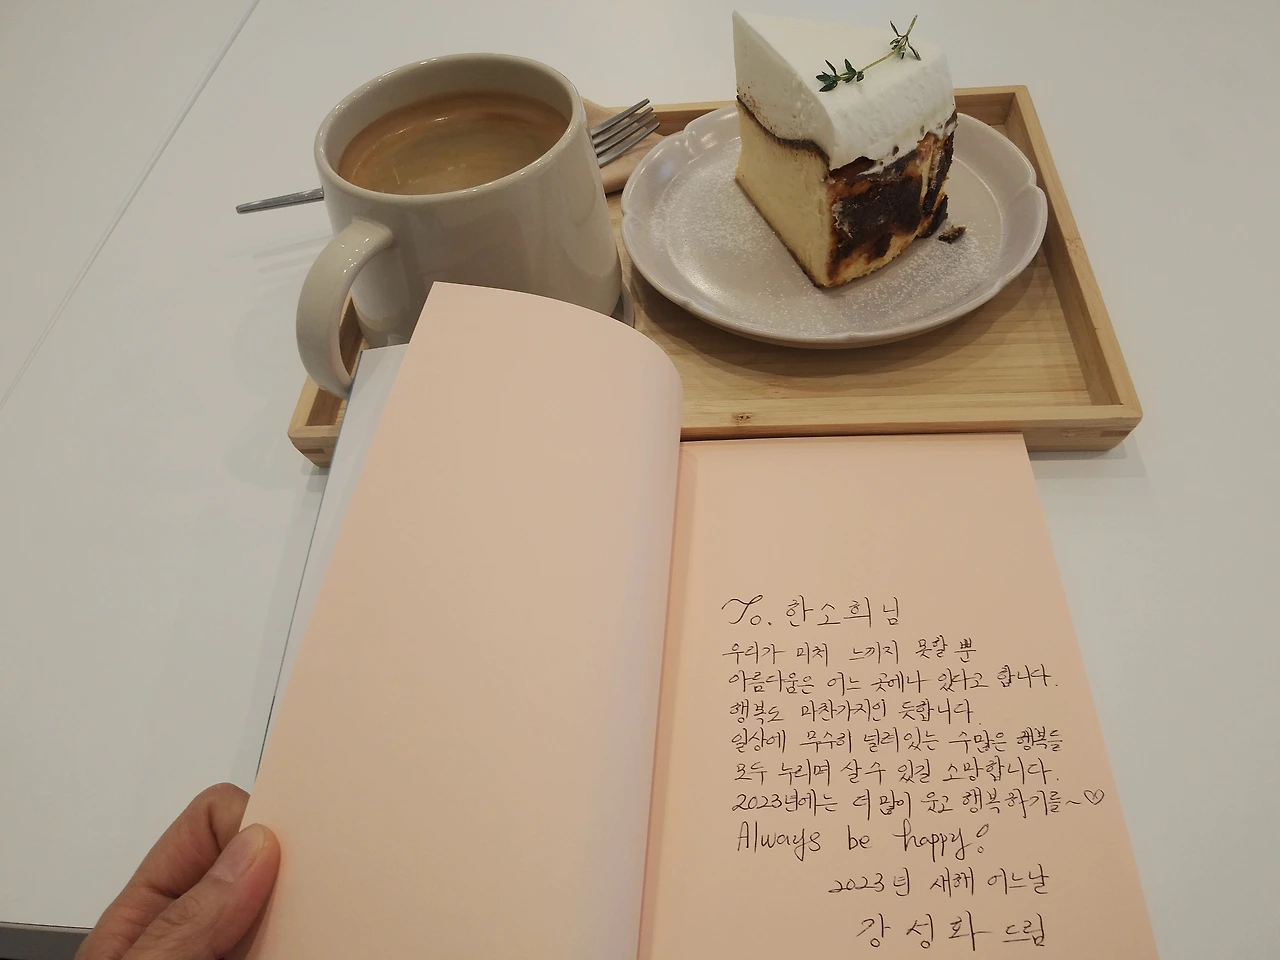 To. 한소희님
우리가 미처 느끼지 못할 뿐
아름다움은 어느 곳에나 있다고 합니다.
행복도 마찬가지인 듯합니다.
일상에 무수히 널려있는 수많은 행복들
모두 누리며 살 수 있길 소망합니다.
2023년에는 더 많이 웃고 행복하기를~♡
Always be happy!
2023년 새해 어느날
강성화 드림